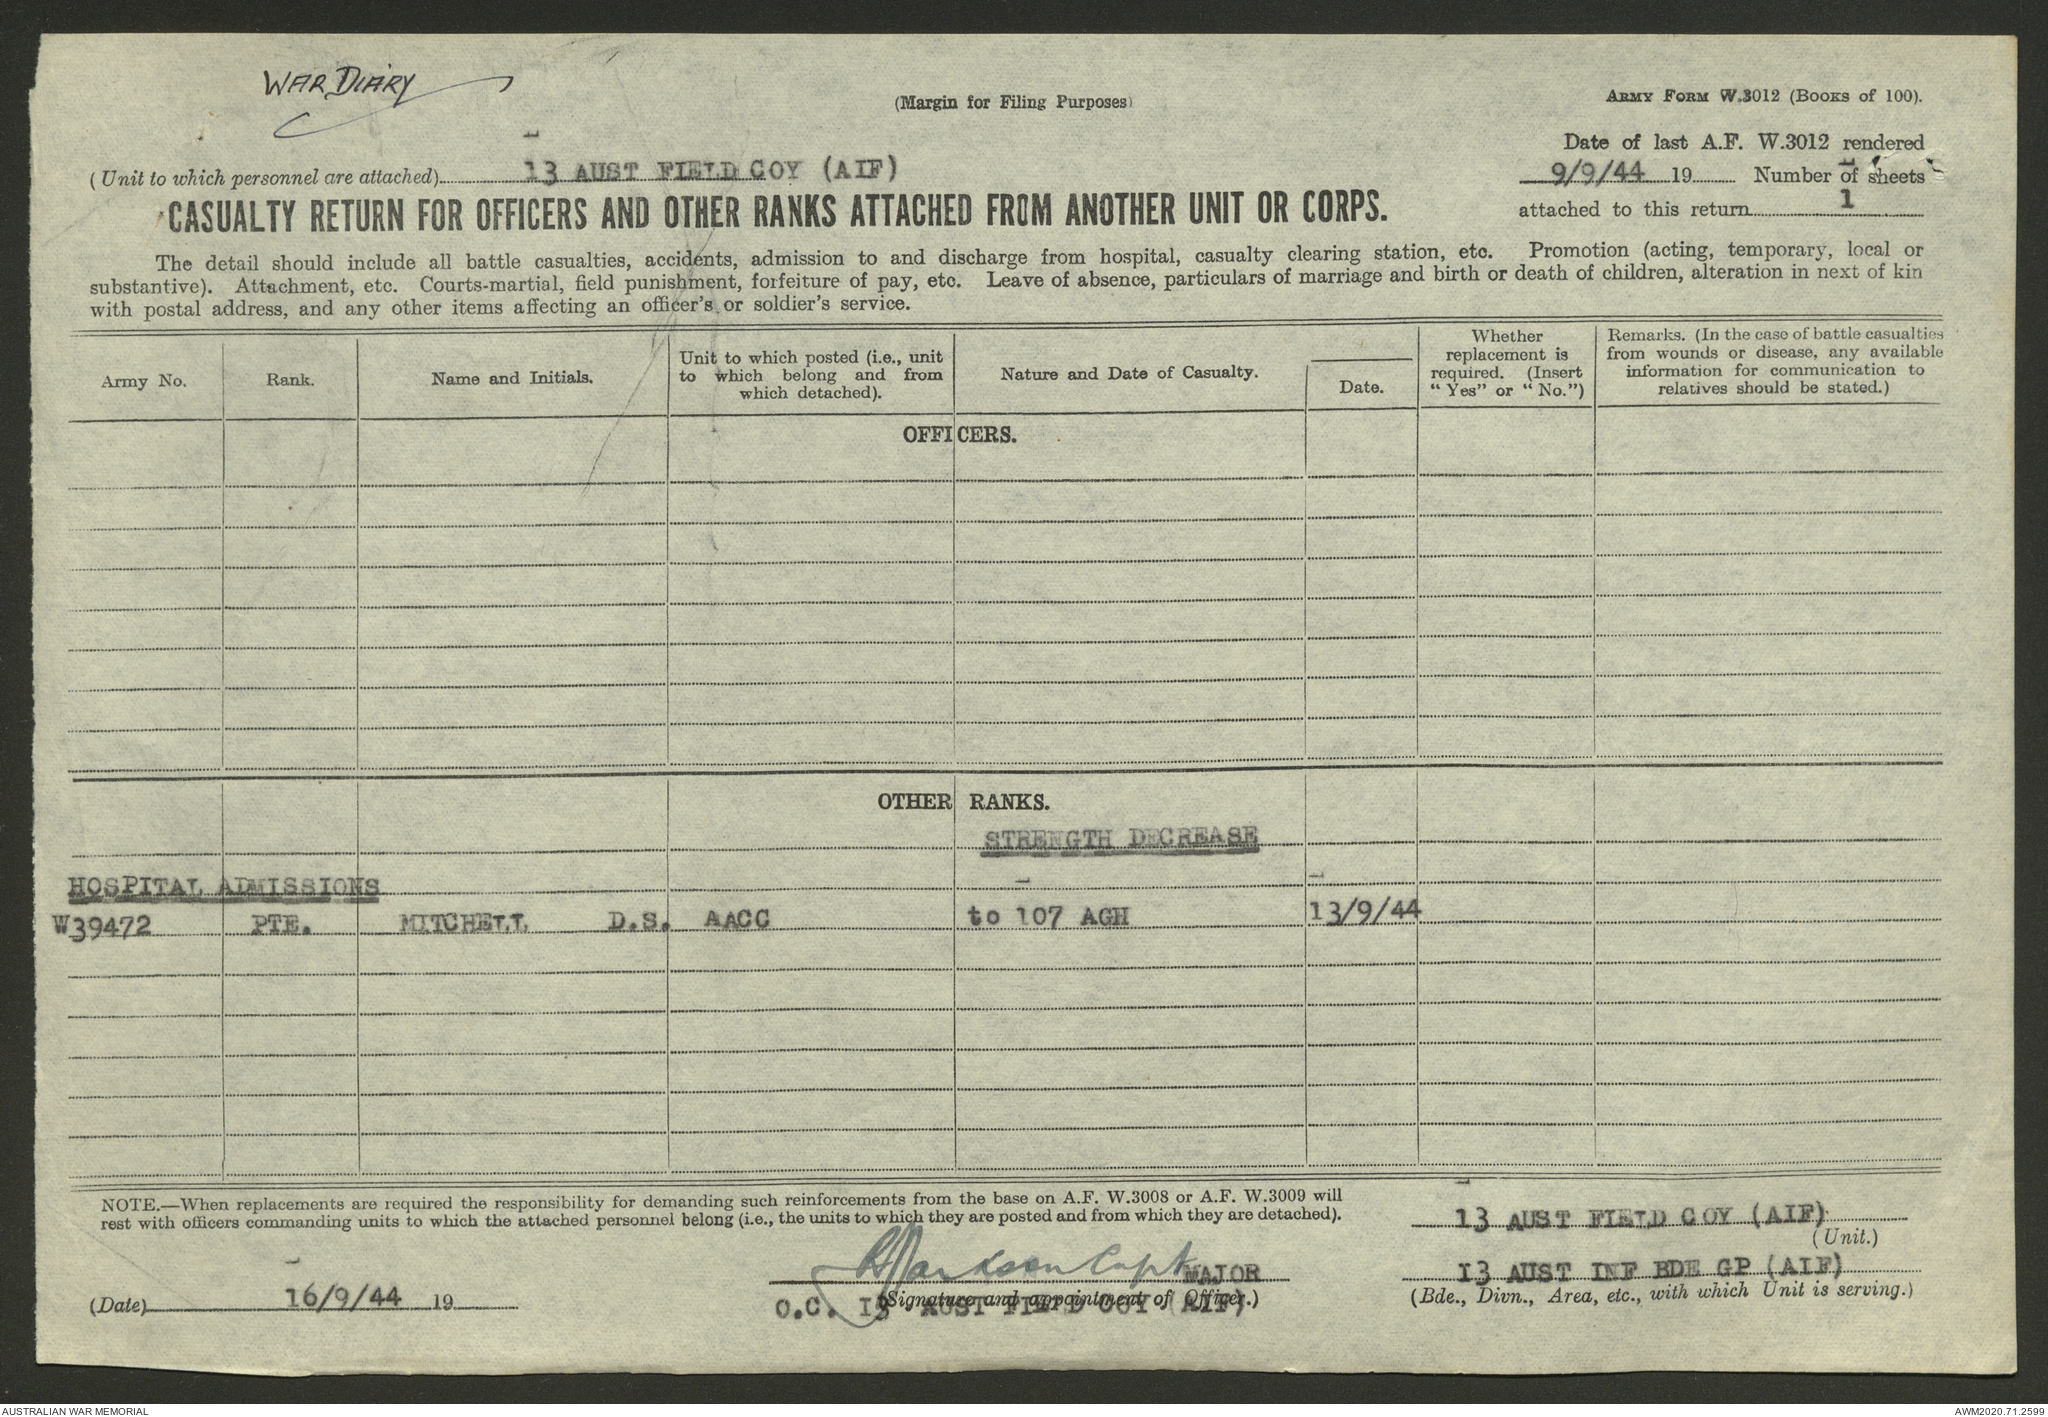 WAR DIARY
(Margin for Filing Purposes)
ARMY FORM W.3012 (BOOKS OF 100).
Date of last A.F. W.3012 rendered
(Unit to which personnel are attached) 13 AUST FIELD COY (AIF)
9/9/44 19 Number of sheets
attached to this return 1
CASUALTY RETURN FOR OFFICERS AND OTHER RANKS ATTACHED FROM ANOTHER UNIT OR CORPS.
The detail should include all battle casualties, accidents, admission to and discharge from hospital, casualty clearing station, etc. Promotion (acting, temporary, local or
substantive). Attachment, etc. Courts-martial, field punishment, forfeiture of pay, etc. Leave of absence, particulars of marriage and birth or death of children, alteration in next of kin
with postal address, and any other items affecting an officer's or soldier's service.
Army No.
Rank.
Name and Initials.
Unit to which posted (i.e., unit
to which belong and from
which detached).
Nature and Date of Casualty.
Date.
Whether
replacement is
required. (Insert
"Yes" or "No.")
Remarks. (In the case of battle casualties
from wounds or disease, any available
information for communication to
relatives should be stated.)
OFFICERS.
OTHER RANKS.
STRENGTH DECREASE
HOSPITAL ADMISSIONS
W39472 PTE. MITCHELL D.S. AACC to 107 AGH 13/9/44
NOTE.—When replacements are required the responsibility for demanding such reinforcements from the base on A.F. W.3008 or A.F. W.3009 will
rest with officers commanding units to which the attached personnel belong (i.e., the units to which they are posted and from which they are detached).
13 AUST FIELD COY (AIF)
(Unit.)
Capt MAJOR
13 AUST INF BDE GP (AIF)
(Date) 16/9/44 19
(Signature and appointment of Officer.)
O.C. 13 AUST FIELD COY (AIF)
(Bde., Divn., Area, etc., with which Unit is serving.)
AUSTRALIAN WAR MEMORIAL
AWM2020.71.2599